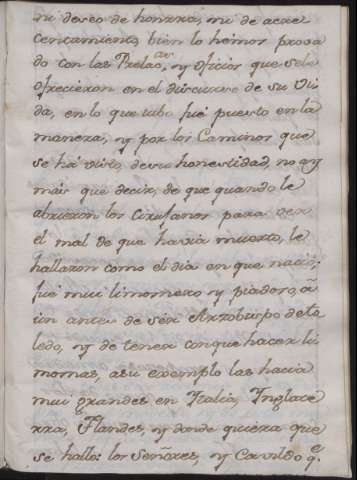 ni deseo de honrra, ni de acre
centamiento, bien lo hemos prova
do con las Prelac.as, y oficios que se le
ofrecieron en el discurso de su Vi
da, en lo que iubo fué puesto en la
manera, y por los Caminos que
se há visto, de su honestidad, no ay
mais que decir, de que quando le
abrieron los Cirujanos para ver
el mal de que havia muerto, le
hallaron como el dia en que nació;
fué mui limosnero, y piadoso, a
ún antes de sér Arzobispo de To
ledo, y de tener con que hacer li
mosnas, asu exemplo las hacia
mui grandes en Italia, Inglate
rra, Flandes, y donde quiera que
se halló: los Señores, y Cavildo q.e